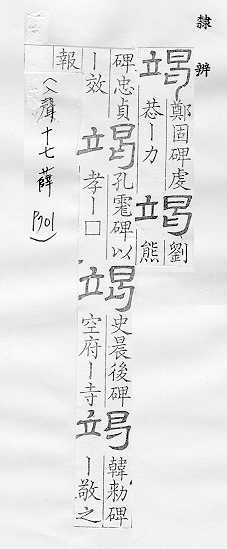 隸辨
竭
鄭固碑虔
恭丨力
竭
劉
熊
碑忠貞
丨效
報
竭
孔碑以
孝丨□
竭
史晨後碑
空府丨寺
竭
韓勑碑
丨敬之
(入聲十七薛 P701)